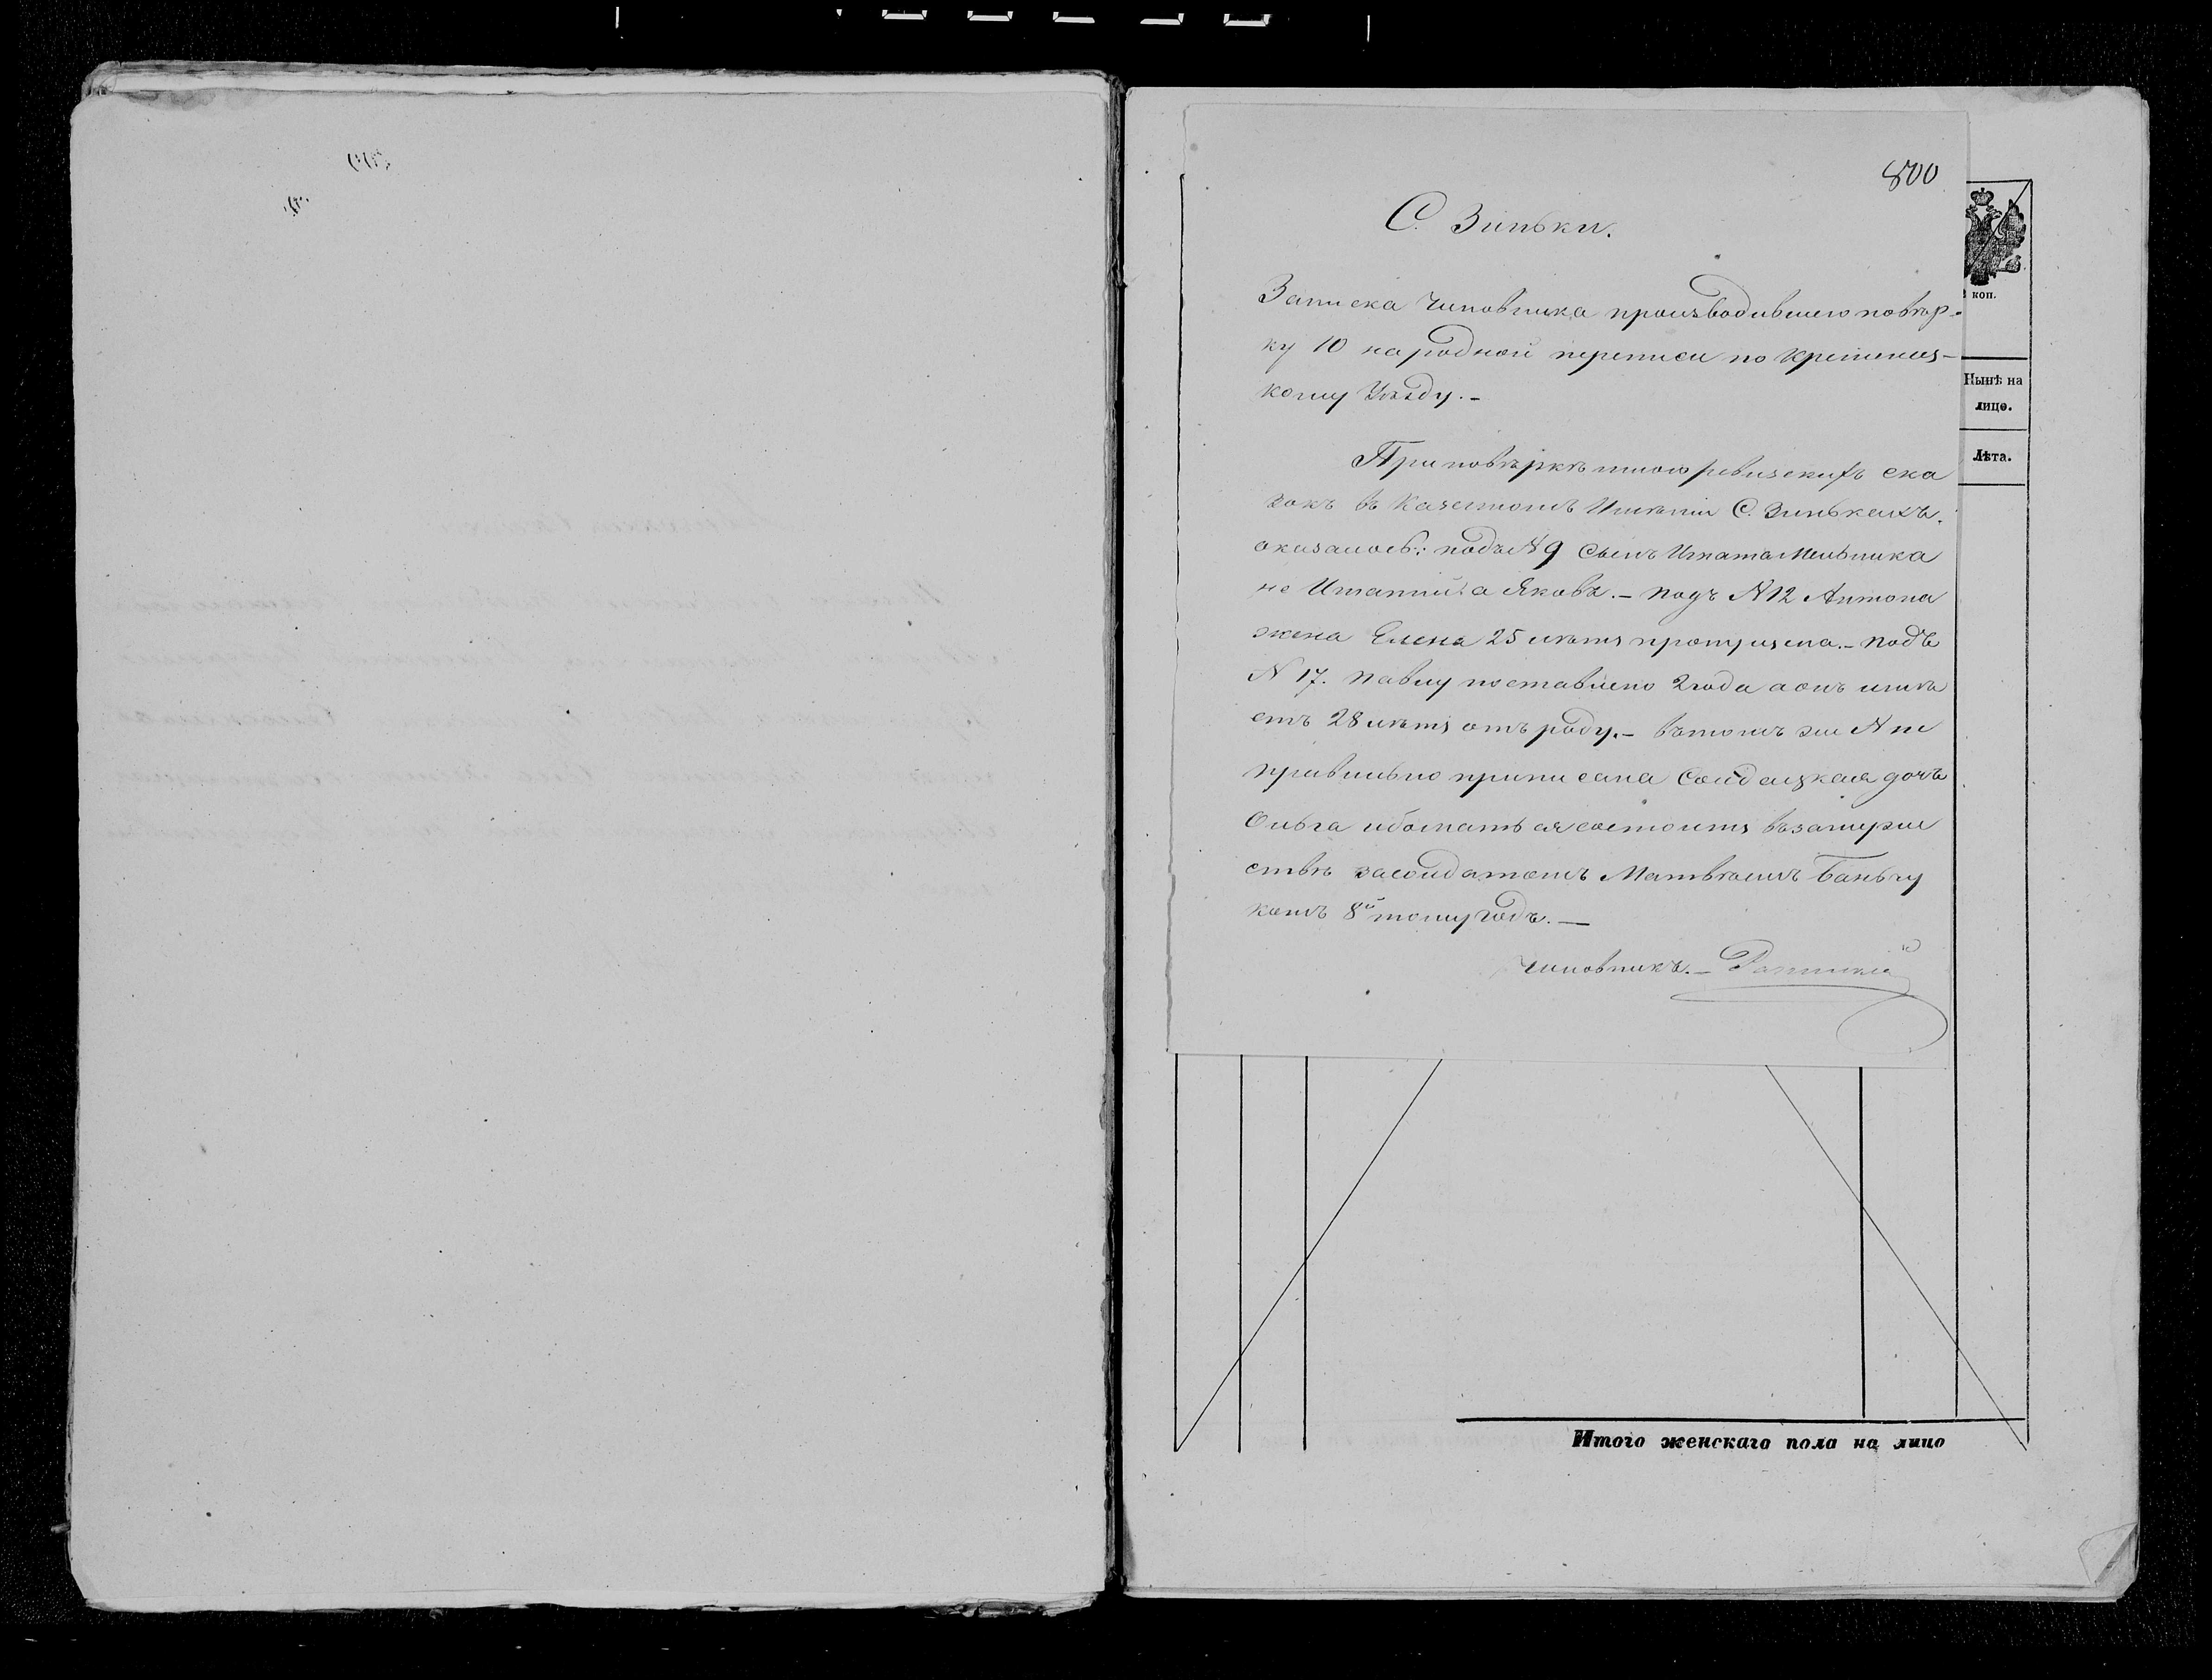 800
С. Зиньки.
Записка чиновника производившего повѣр-
ку 10 народной переписи по Кременец-
кому Уѣзду.-
При повѣркѣ мною ревизскихъ ска
зокъ въ Казенномъ Имѣніи С. Зинькахъ.
оказалось: подъ N 9 сынъ Игната Мельника
не Игнатій а Яковъ.- подъ N 12 Антона
жена Елена 25 лѣтъ пропущена.- подъ
N 17. Павлу поставлено 2 года а онъ имѣ
етъ 28 лѣтъ отъ роду.- въ томъ же N не
правильно приписана Солдатская дочь
Ольга ибо мать ея состоитъ въ замуже
ствѣ за солдатомъ Матвѣемъ
комъ 8й тому годъ.-
Чиновникъ.-
коп.
Нынѣ на
лицо.
Лѣта.
Итого женскаго пола на лицо